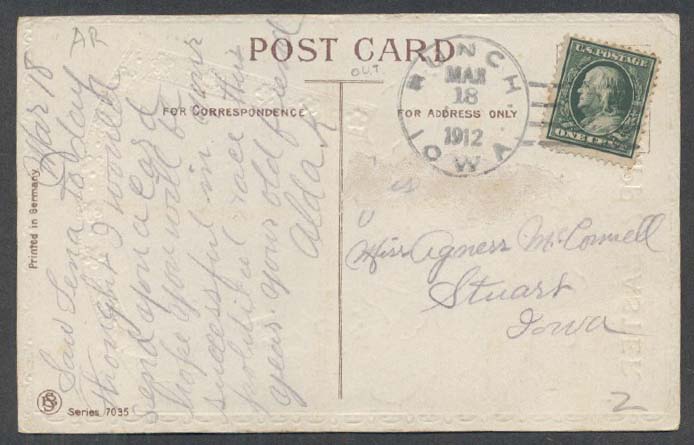 AR
POST CARD
OUT.
FOR CORRESPONDENCE
FOR ADDRESS ONLY
RUNCH
MAR
18
1912
IOWA
U.S. POSTAGE
ONE CENT
Mar 18
Saw Lena to day
thought I would
send you a card
hope you will be
successful in your
political race this
year. your old friend
Alda K
Miss Agness McConnell
Stuart
Iowa
Printed in Germany
Series 7035
2